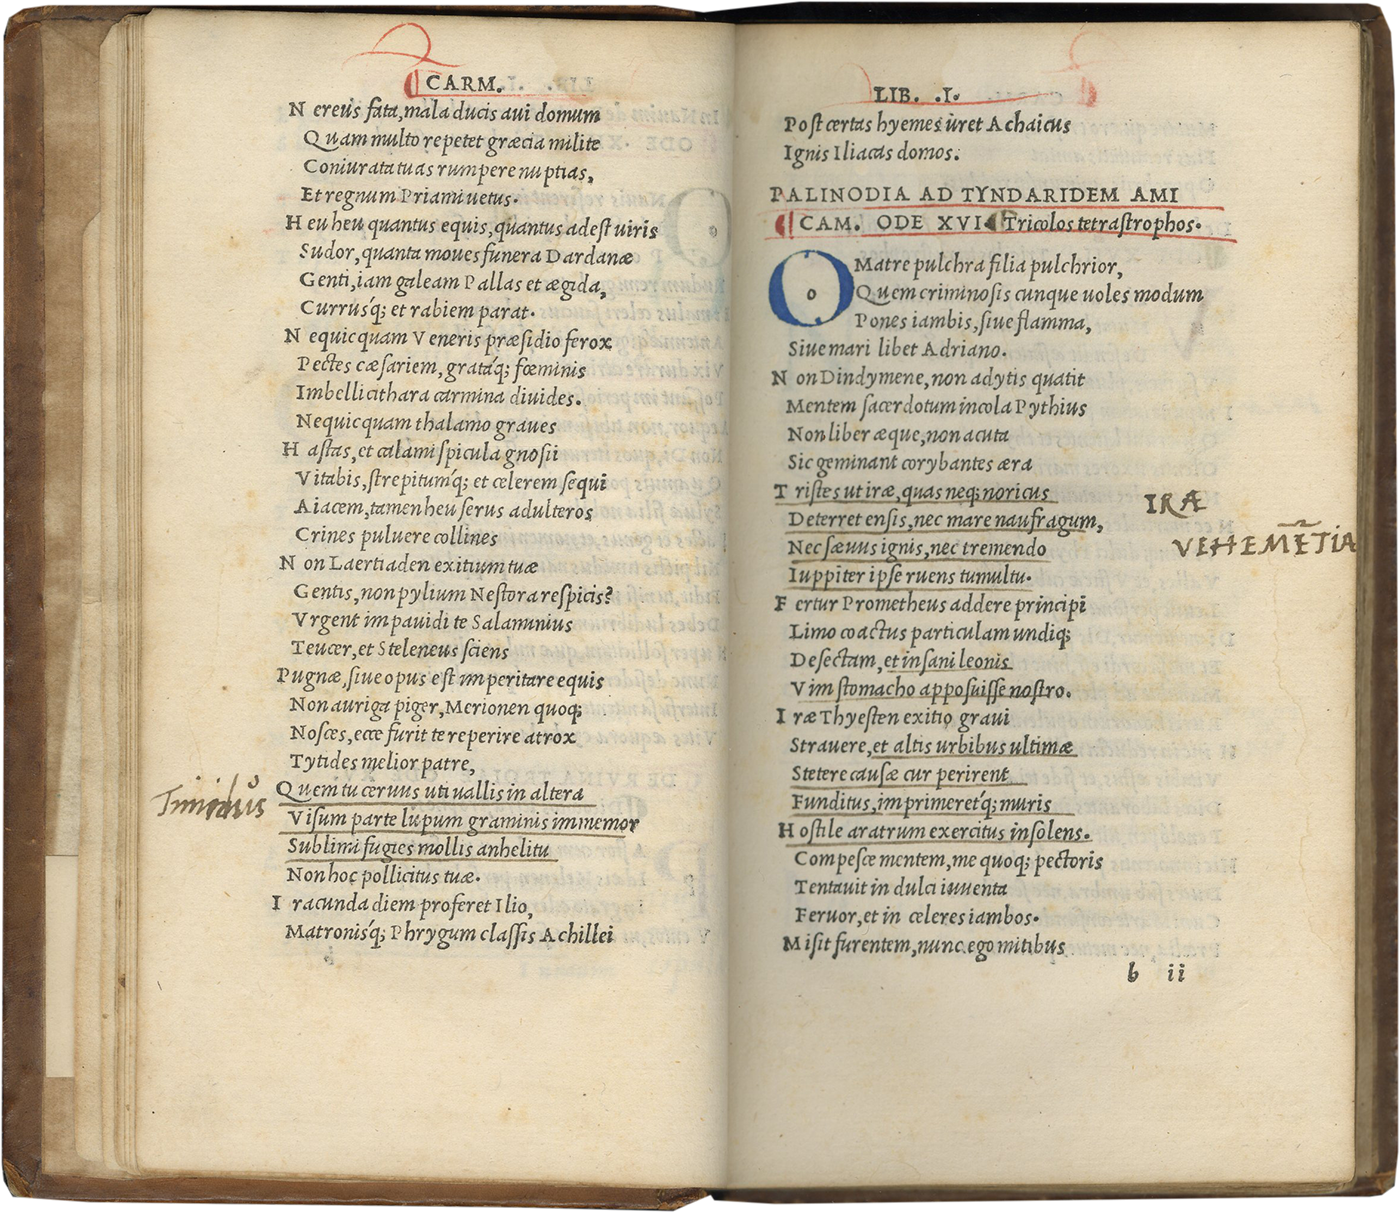 CARM.
N ereus fata, mala ducis aui domum
Quam multo repetet græcia milite
Coniurata tuas rumpere nuptias,
Et regnum Priami uetus.
H eu heu quantus equis, quantus adest uiris
Sudor, quanta moues funera Dardanæ
Genti, iam galeam Pallas et ægida,
Currusq́; et rabiem parat.
N equicquam Veneris præsidio ferox
Pectes cæsariem, grataq́; fœminis
Imbelli cithara carmina diuides.
Nequicquam thalamo graues
H astas, et calami spicula gnosii
Vitabis, strepitumq́; et celerem sequi
Aiacem, tamen heu serus adulteros
Crines puluere collines
N on Laertiaden exitium tuæ
Gentis, non pylium Nestora respicis?
Vrgent impauidi te Salaminius
Teucer, et Steleneus sciens
Pugnæ, siue opus est imperitare equis
Non auriga piger, Merionen quoq;
Nosces, ecce furit te reperire atrox
Tytides melior patre,
Timidus
Quem tu ceruus uti uallis in altera
Visum parte lupum graminis immemor
Sublimi fugies mollis anhelitu
Non hoc pollicitus tuæ.
I racunda diem proferet Ilio,
Matronisq́; Phrygum classis Achillei
LIB. .I.
Post certas hyemes uret Achaicus
Ignis Iliacas domos.
PALINODIA AD TYNDARIDEM AMI
CAM. ODE XVI Tricolos tetrastrophos.
O Matre pulchra filia pulchrior,
Quem criminosis cunque uoles modum
Pones iambis, siue flamma,
Siue mari libet Adriano.
N on Dindymene, non adytis quatit
Mentem sacerdotum incola Pythius
Non liber æque, non acuta
Sic geminant corybantes æra
T ristes ut iræ, quas neq; noricus
IRÆ
Deterret ensis, nec mare naufragum,
VEHEMĒTIA
Nec sæuus ignis, nec tremendo
Iuppiter ipse ruens tumultu.
F ertur Prometheus addere principi
Limo coactus particulam undiq;
Desectam, et insani leonis
Vim stomacho apposuisse nostro.
I ræ Thyesten exitio graui
Strauere, et altis urbibus ultimæ
Stetere causæ cur perirent
Funditus, imprimeretq́; muris
H ostile aratrum exercitus insolens.
Compesce mentem, me quoq; pectoris
Tentauit in dulci iuuenta
Feruor, et in celeres iambos.
M isit furentem, nunc ego mitibus
b ii